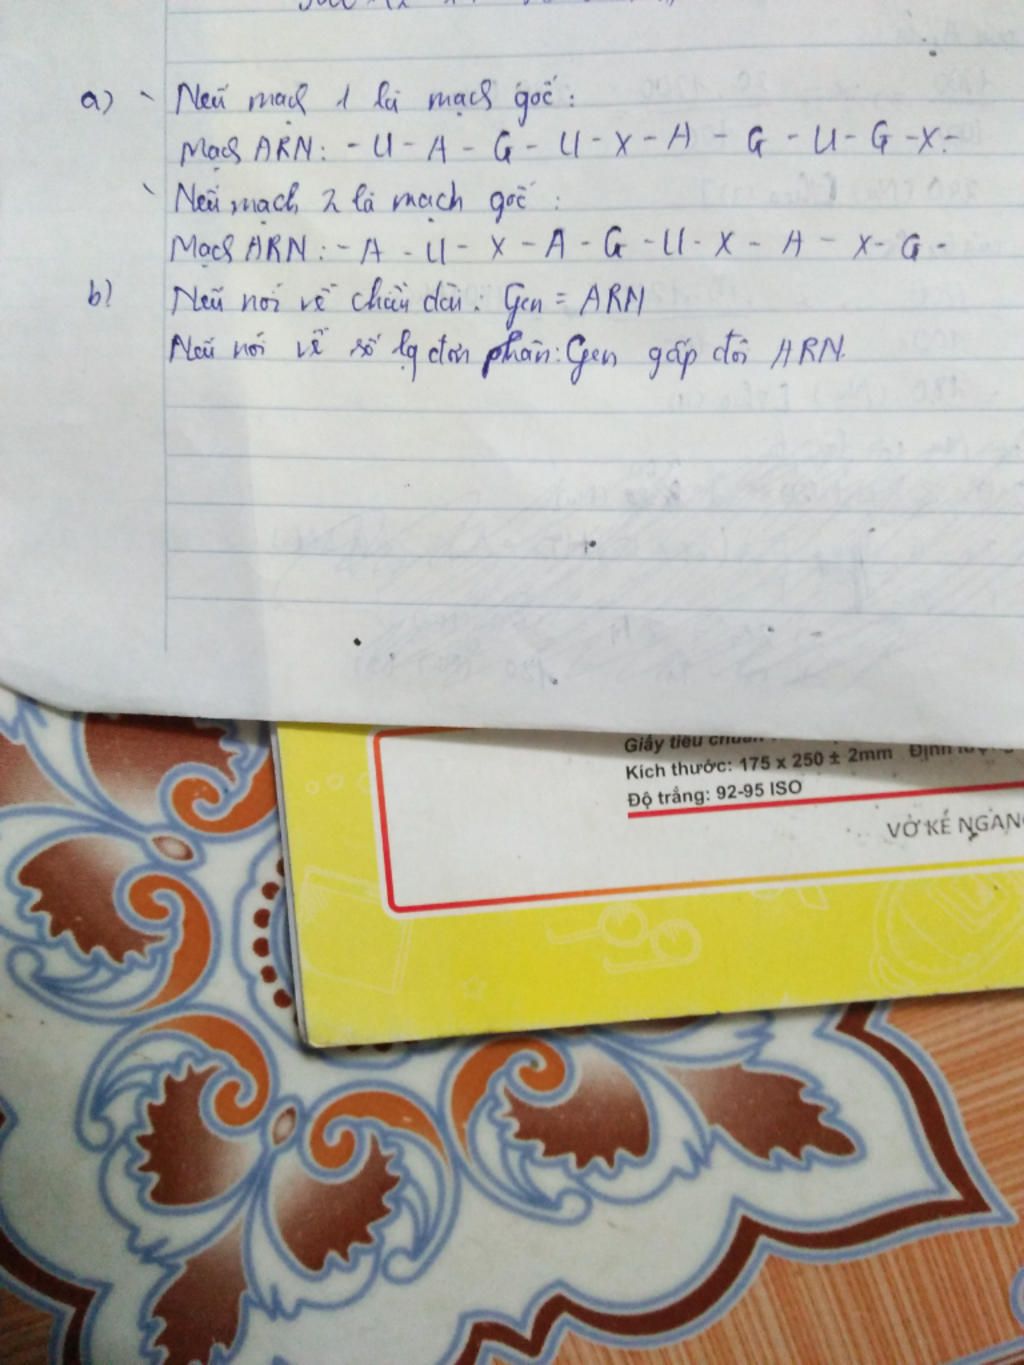 a) - Nếu mạch 1 là mạch gốc:
Mạch ARN: - U - A - G - U - X - A - G - U - G - X -
- Nếu mạch 2 là mạch gốc:
Mạch ARN: - A - U - X - A - G - U - X - A - X - G -
b) Nếu nói về chiều dài: Gen = ARN
Nếu nói về số lg đơn phân: Gen gấp đôi ARN.
Giấy tiêu chuẩn
Kích thước: 175 x 250 ± 2mm Định lượng
Độ trắng: 92-95 ISO
VỞ KẺ NGANG